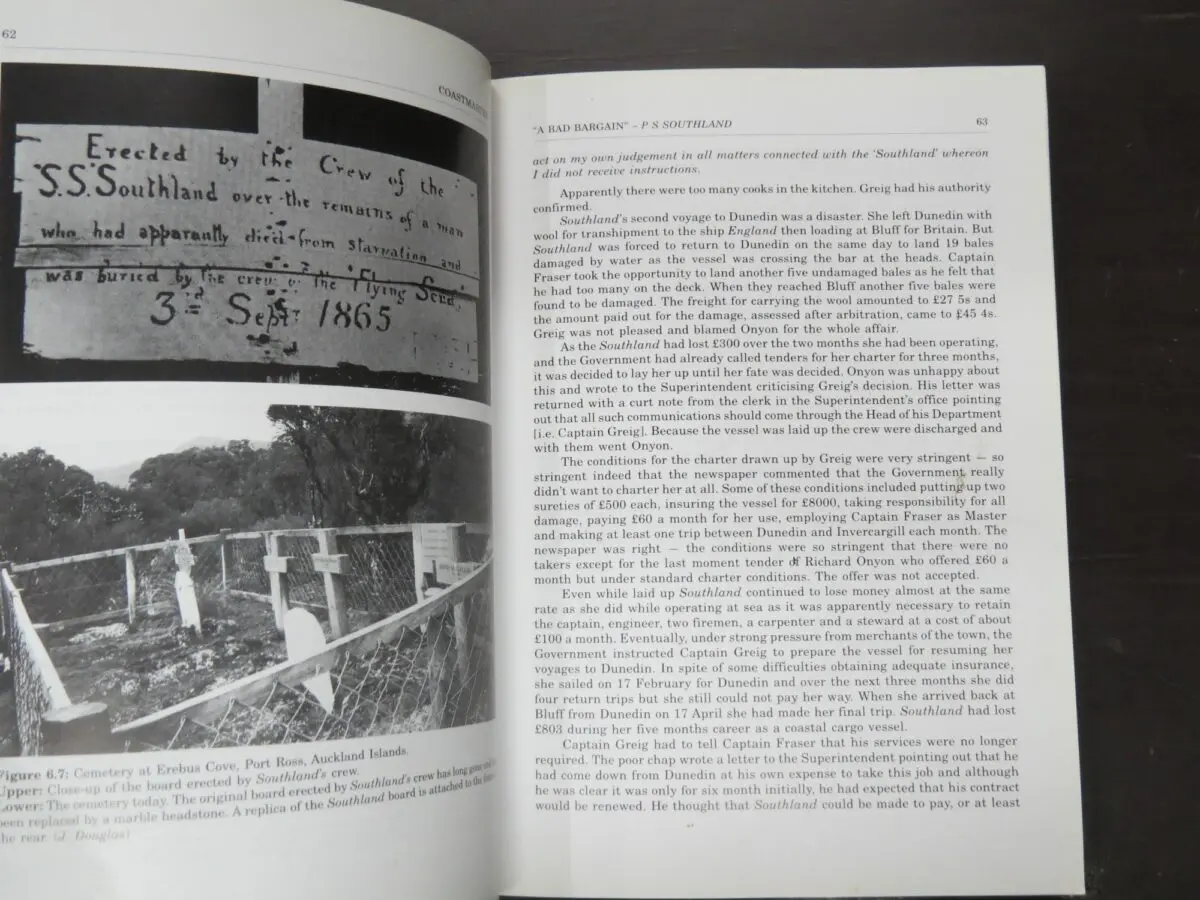 62
COASTMASTER
Erected by the Crew of the
S.S. Southland over the remains of a man
who had apparantly died from starvation and
was buried by the crew of the Flying Scud
3rd Sept: 1865
Figure 6.7: Cemetery at Erebus Cove, Port Ross, Auckland Islands.
Upper: Close-up of the board erected by Southland's crew.
Lower: The cemetery today. The original board erected by Southland's crew has long gone and
been replaced by a marble headstone. A replica of the Southland board is attached to the
the rear. (J Douglas)
"A BAD BARGAIN" – P S SOUTHLAND
63
act on my own judgement in all matters connected with the 'Southland' whereon
I did not receive instructions.
Apparently there were too many cooks in the kitchen. Greig had his authority
confirmed.
Southland's second voyage to Dunedin was a disaster. She left Dunedin with
wool for transhipment to the ship England then loading at Bluff for Britain. But
Southland was forced to return to Dunedin on the same day to land 19 bales
damaged by water as the vessel was crossing the bar at the heads. Captain
Fraser took the opportunity to land another five undamaged bales as he felt that
he had too many on the deck. When they reached Bluff another five bales were
found to be damaged. The freight for carrying the wool amounted to £27 5s and
the amount paid out for the damage, assessed after arbitration, came to £45 4s.
Greig was not pleased and blamed Onyon for the whole affair.
As the Southland had lost £300 over the two months she had been operating,
and the Government had already called tenders for her charter for three months,
it was decided to lay her up until her fate was decided. Onyon was unhappy about
this and wrote to the Superintendent criticising Greig's decision. His letter was
returned with a curt note from the clerk in the Superintendent's office pointing
out that all such communications should come through the Head of his Department
[i.e. Captain Greig]. Because the vessel was laid up the crew were discharged and
with them went Onyon.
The conditions for the charter drawn up by Greig were very stringent — so
stringent indeed that the newspaper commented that the Government really
didn't want to charter her at all. Some of these conditions included putting up two
sureties of £500 each, insuring the vessel for £8000, taking responsibility for all
damage, paying £60 a month for her use, employing Captain Fraser as Master
and making at least one trip between Dunedin and Invercargill each month. The
newspaper was right — the conditions were so stringent that there were no
takers except for the last moment tender of Richard Onyon who offered £60 a
month but under standard charter conditions. The offer was not accepted.
Even while laid up Southland continued to lose money almost at the same
rate as she did while operating at sea as it was apparently necessary to retain
the captain, engineer, two firemen, a carpenter and a steward at a cost of about
£100 a month. Eventually, under strong pressure from merchants of the town, the
Government instructed Captain Greig to prepare the vessel for resuming her
voyages to Dunedin. In spite of some difficulties obtaining adequate insurance,
she sailed on 17 February for Dunedin and over the next three months she did
four return trips but she still could not pay her way. When she arrived back at
Bluff from Dunedin on 17 April she had made her final trip. Southland had lost
£803 during her five months career as a coastal cargo vessel.
Captain Greig had to tell Captain Fraser that his services were no longer
required. The poor chap wrote a letter to the Superintendent pointing out that he
had come down from Dunedin at his own expense to take this job and although
he was clear it was only for six month initially, he had expected that his contract
would be renewed. He thought that Southland could be made to pay, or at least